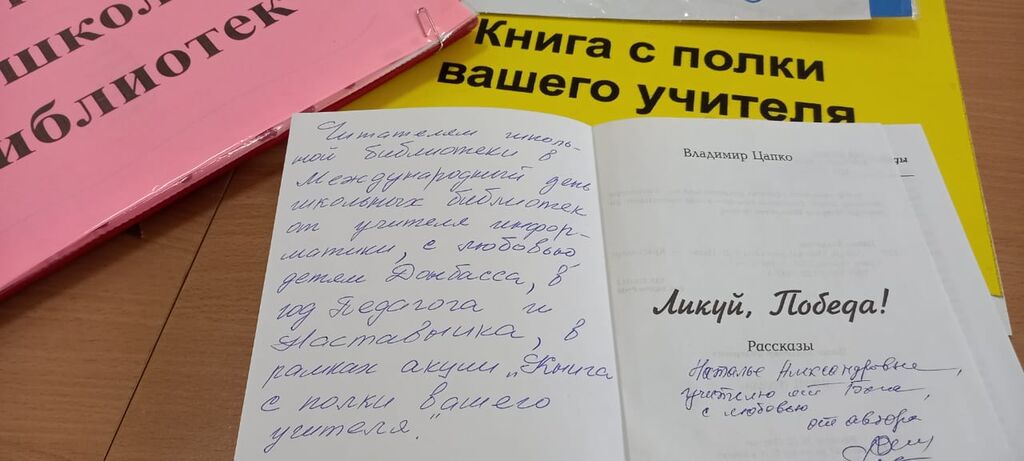 школ
иблиотек
Книга с полки
вашего учителя
Читателям школь-
ной библиотеки в
Международный день
школьных библиотек
от учителя инфор-
матики, с любовью
детям Донбасса, в
год Педагога и
Наставника, в
рамках акции „Книга
с полки вашего
учителя."
Владимир Цапко
Ликуй, Победа!
Рассказы
Наталье Александровне,
учителю от Бога,
с любовью
от автора